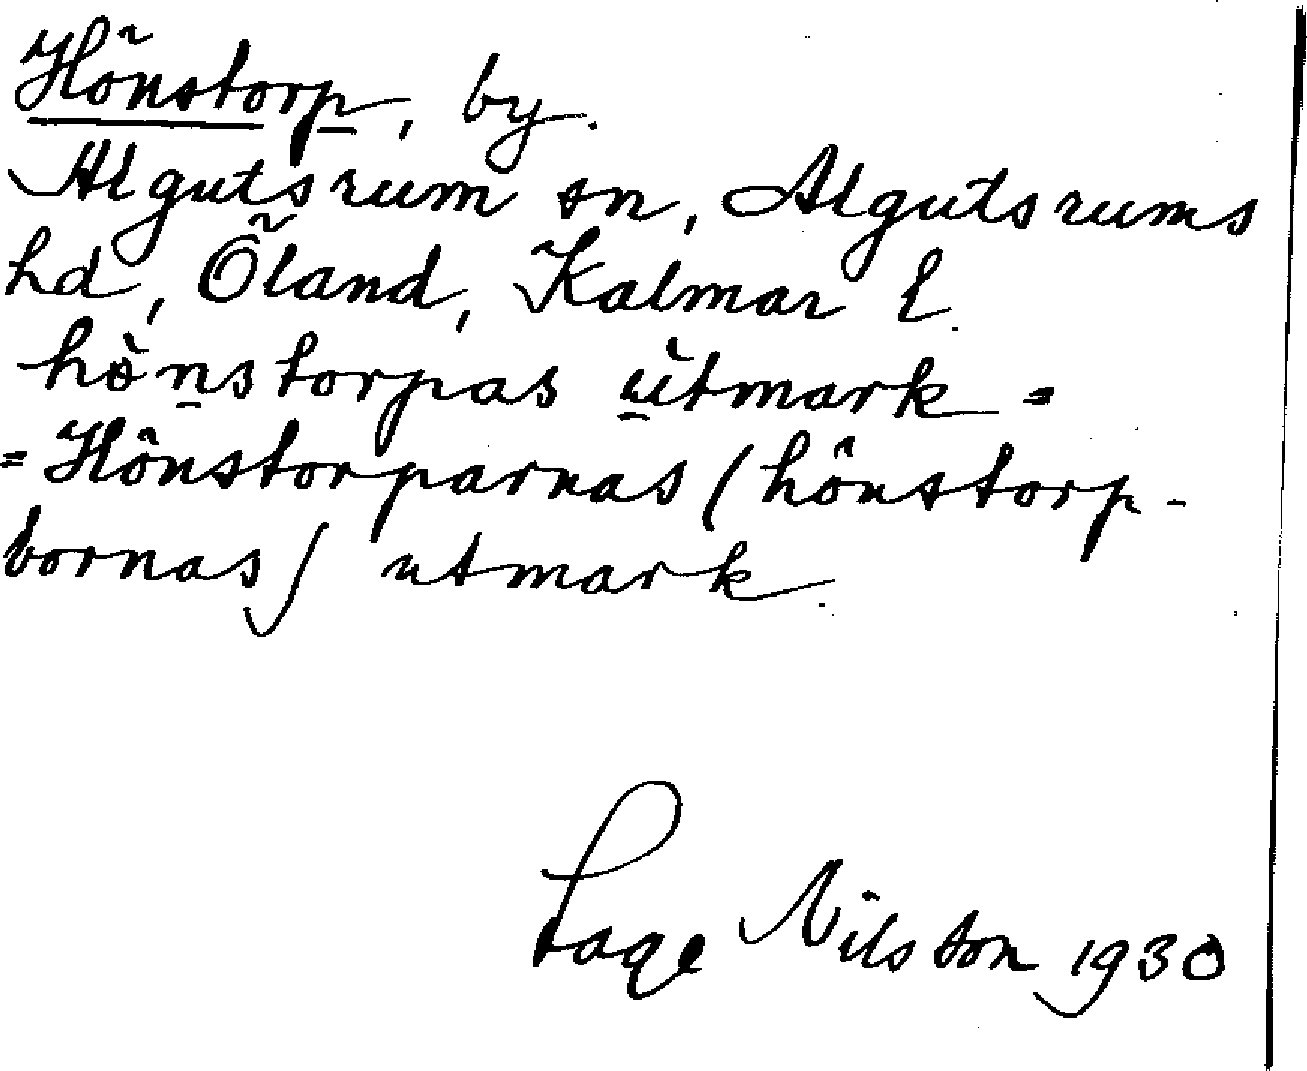 Hönstorp, by.
Algutsrum sn, Algutsrums
hd, Öland, Kalmar l.
hönstorpas ùtmark =
= Hönstorparnas (hönstorp-
bornas) utmark.
Sage Nilsson 1930